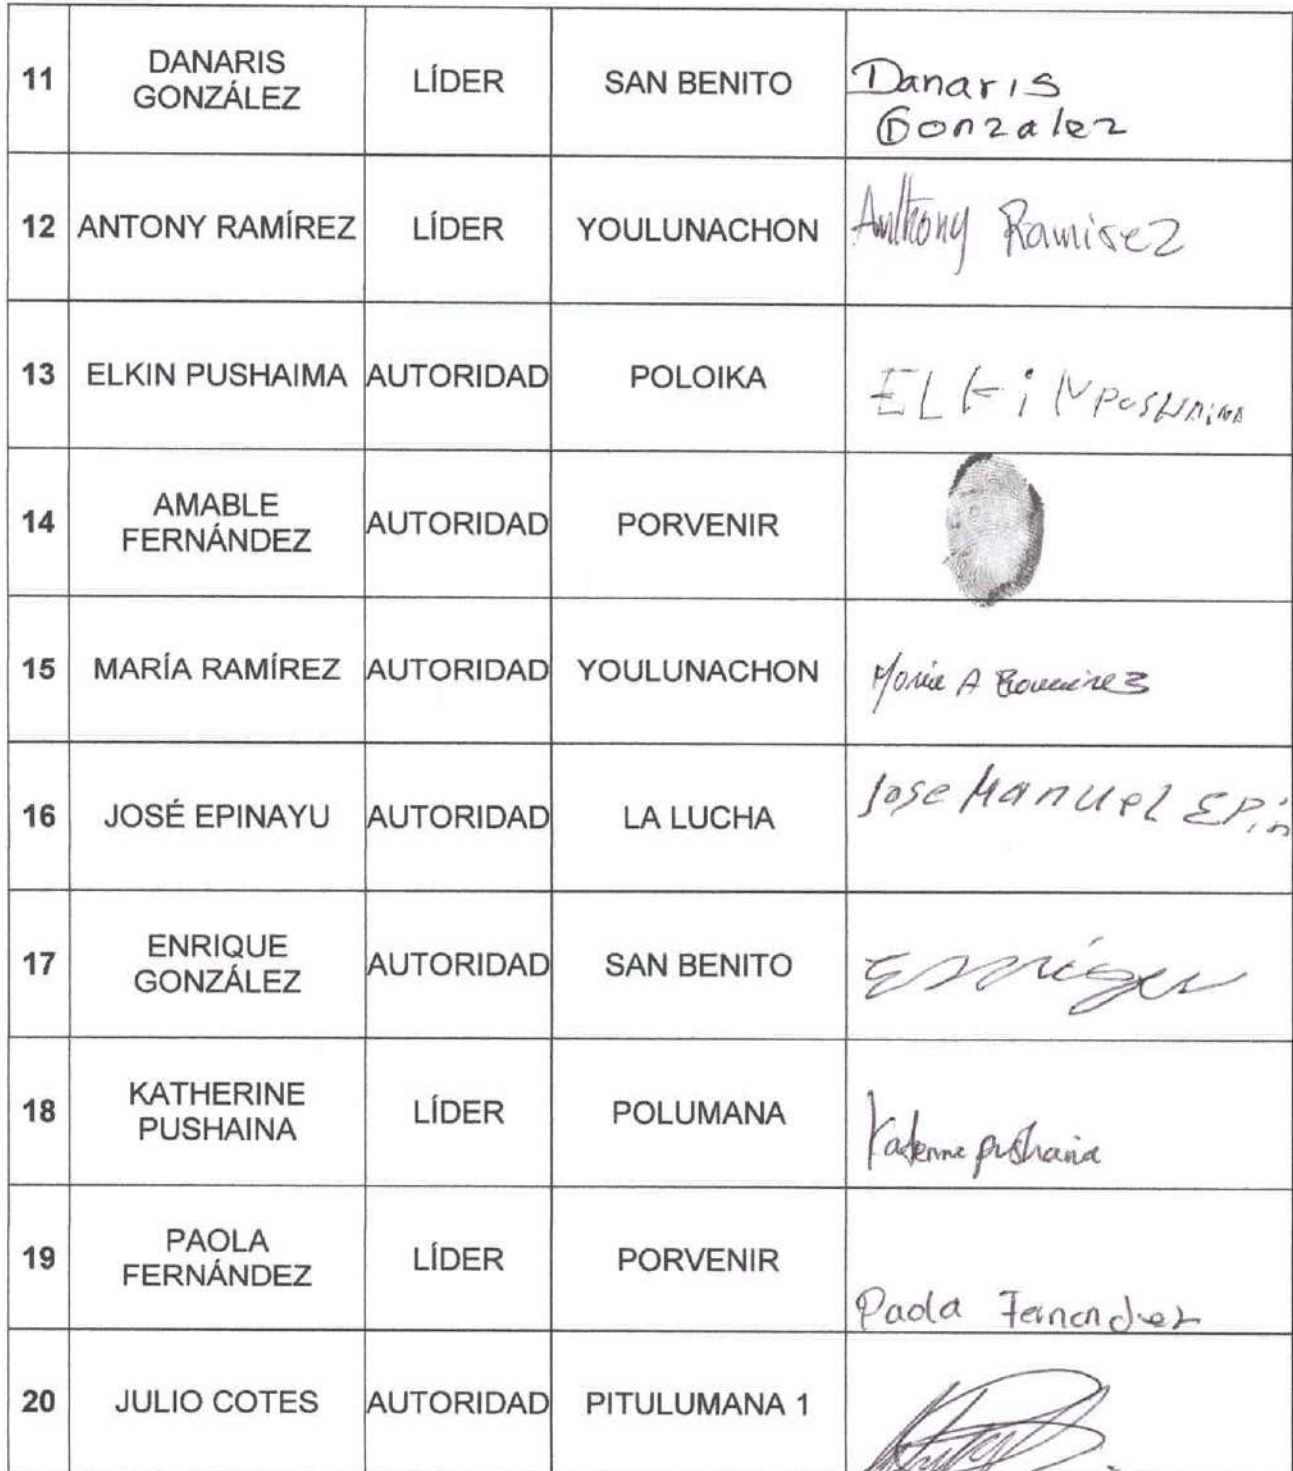 11 DANARIS GONZÁLEZ LÍDER SAN BENITO Danaris Gonzalez
12 ANTONY RAMÍREZ LÍDER YOULUNACHON Anthony Ramirez
13 ELKIN PUSHAIMA AUTORIDAD POLOIKA ELKiN PUSHAiNA
14 AMABLE FERNÁNDEZ AUTORIDAD PORVENIR
15 MARÍA RAMÍREZ AUTORIDAD YOULUNACHON Maria A Ramirez
16 JOSÉ EPINAYU AUTORIDAD LA LUCHA Jose Manuel EPin
17 ENRIQUE GONZÁLEZ AUTORIDAD SAN BENITO
18 KATHERINE PUSHAINA LÍDER POLUMANA pushaina
19 PAOLA FERNÁNDEZ LÍDER PORVENIR Paola Fernandez
20 JULIO COTES AUTORIDAD PITULUMANA 1